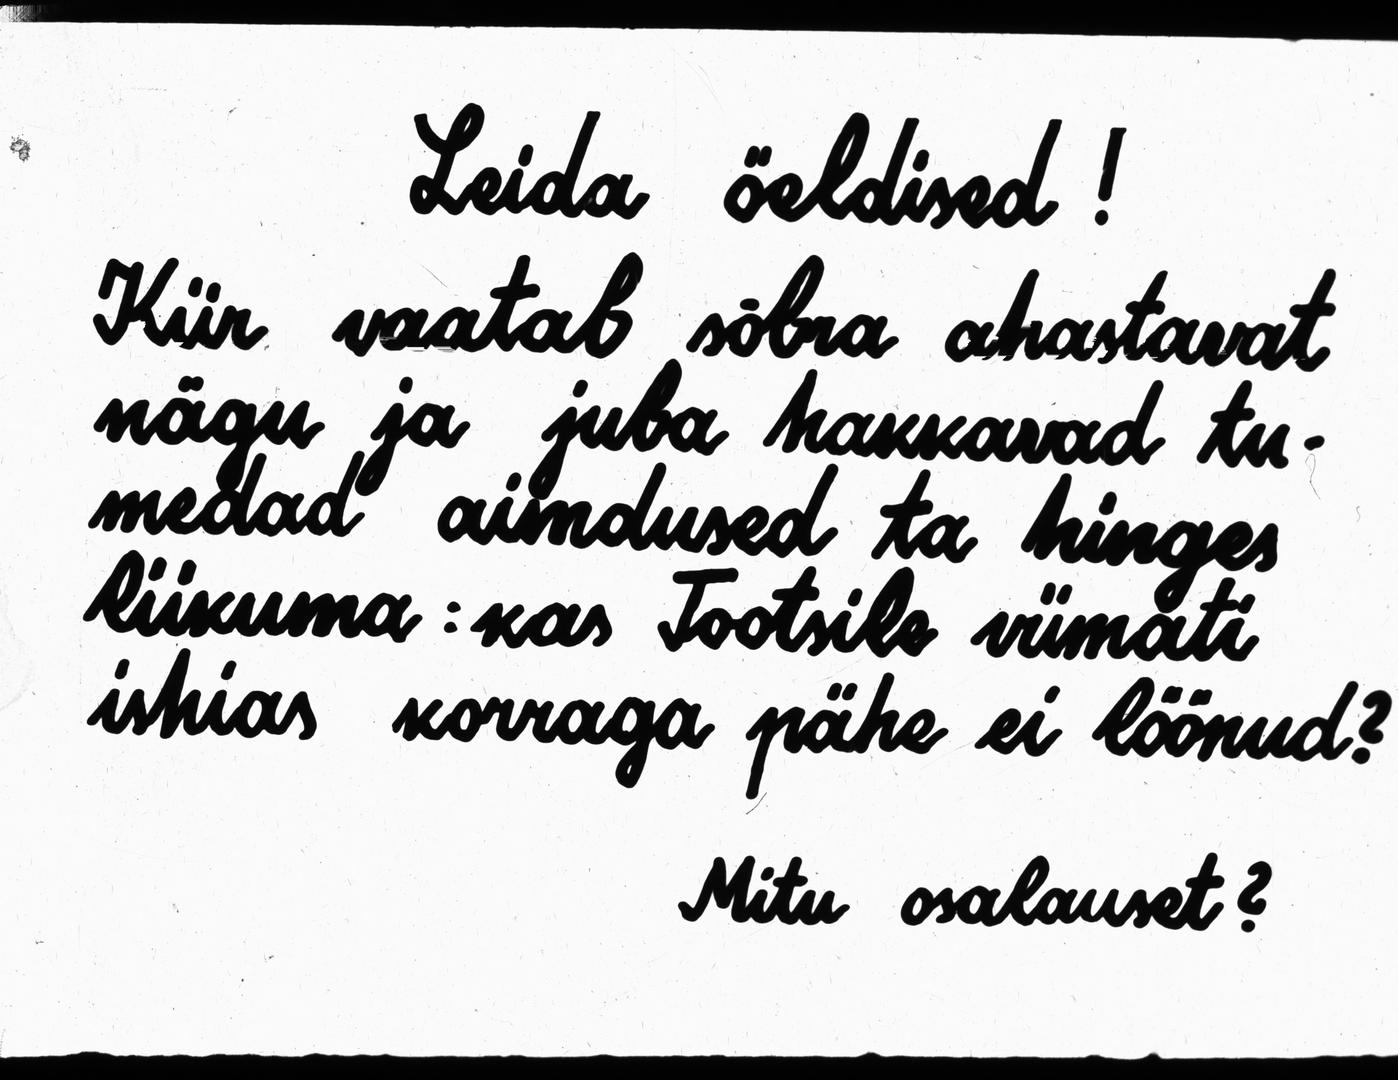 Leida öeldised!
Kiir vaatab sõbra ahastavat
nägu ja juba hakkavad tu-
medad aimdused ta hinges
liikuma: kas Tootsile viimati
ishias korraga pähe ei löönud?
Mitu osalauset?